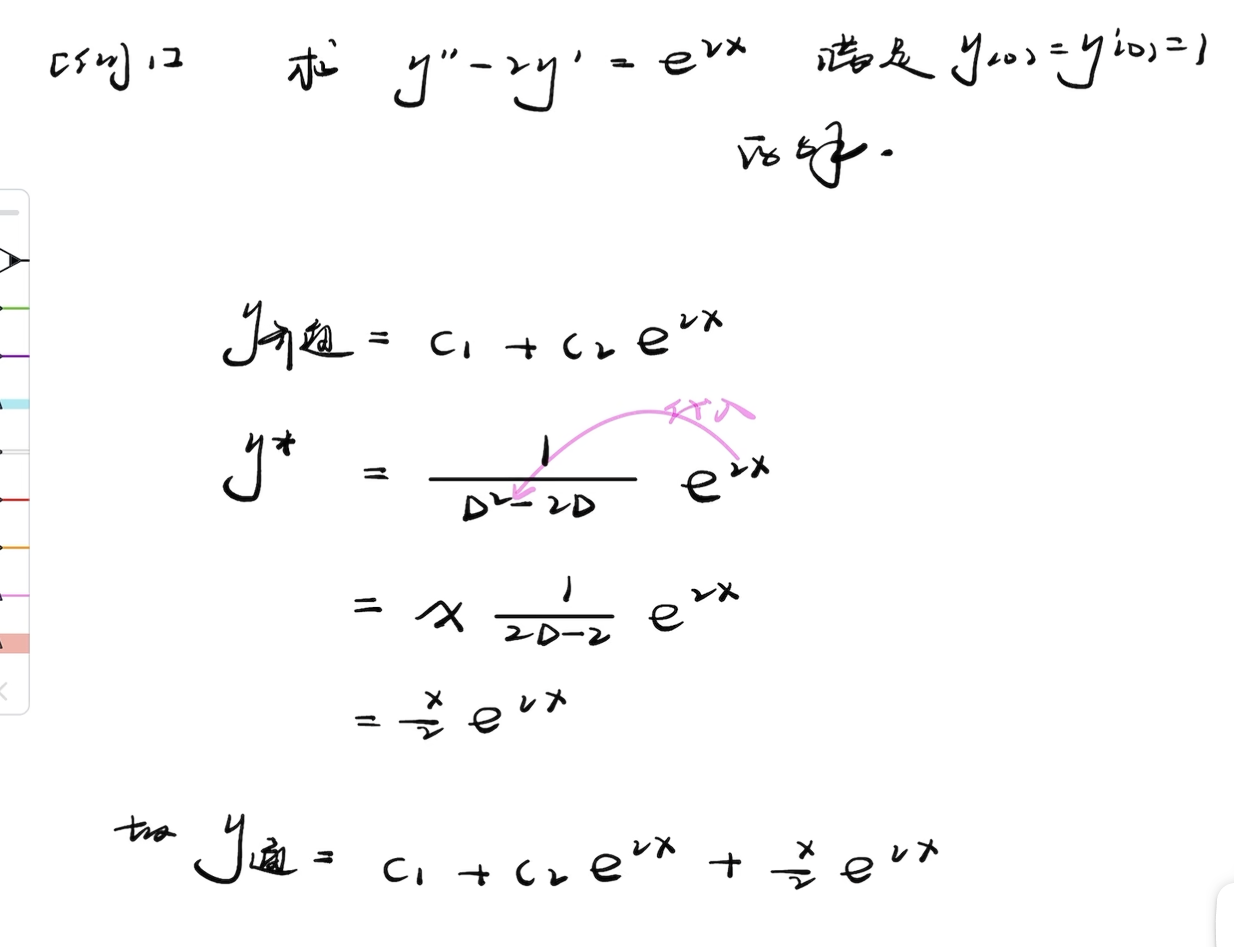 [例1] 求 y'' - 2y' = e^{2x} 满足 y(0) = y'(0) = 1
的解.
y齐通 = C₁ + C₂ e^{2x}
代入
y* = \frac{1}{D² - 2D} e^{2x}
= x \frac{1}{2D-2} e^{2x}
= \frac{x}{2} e^{2x}
故 y通 = C₁ + C₂ e^{2x} + \frac{x}{2} e^{2x}